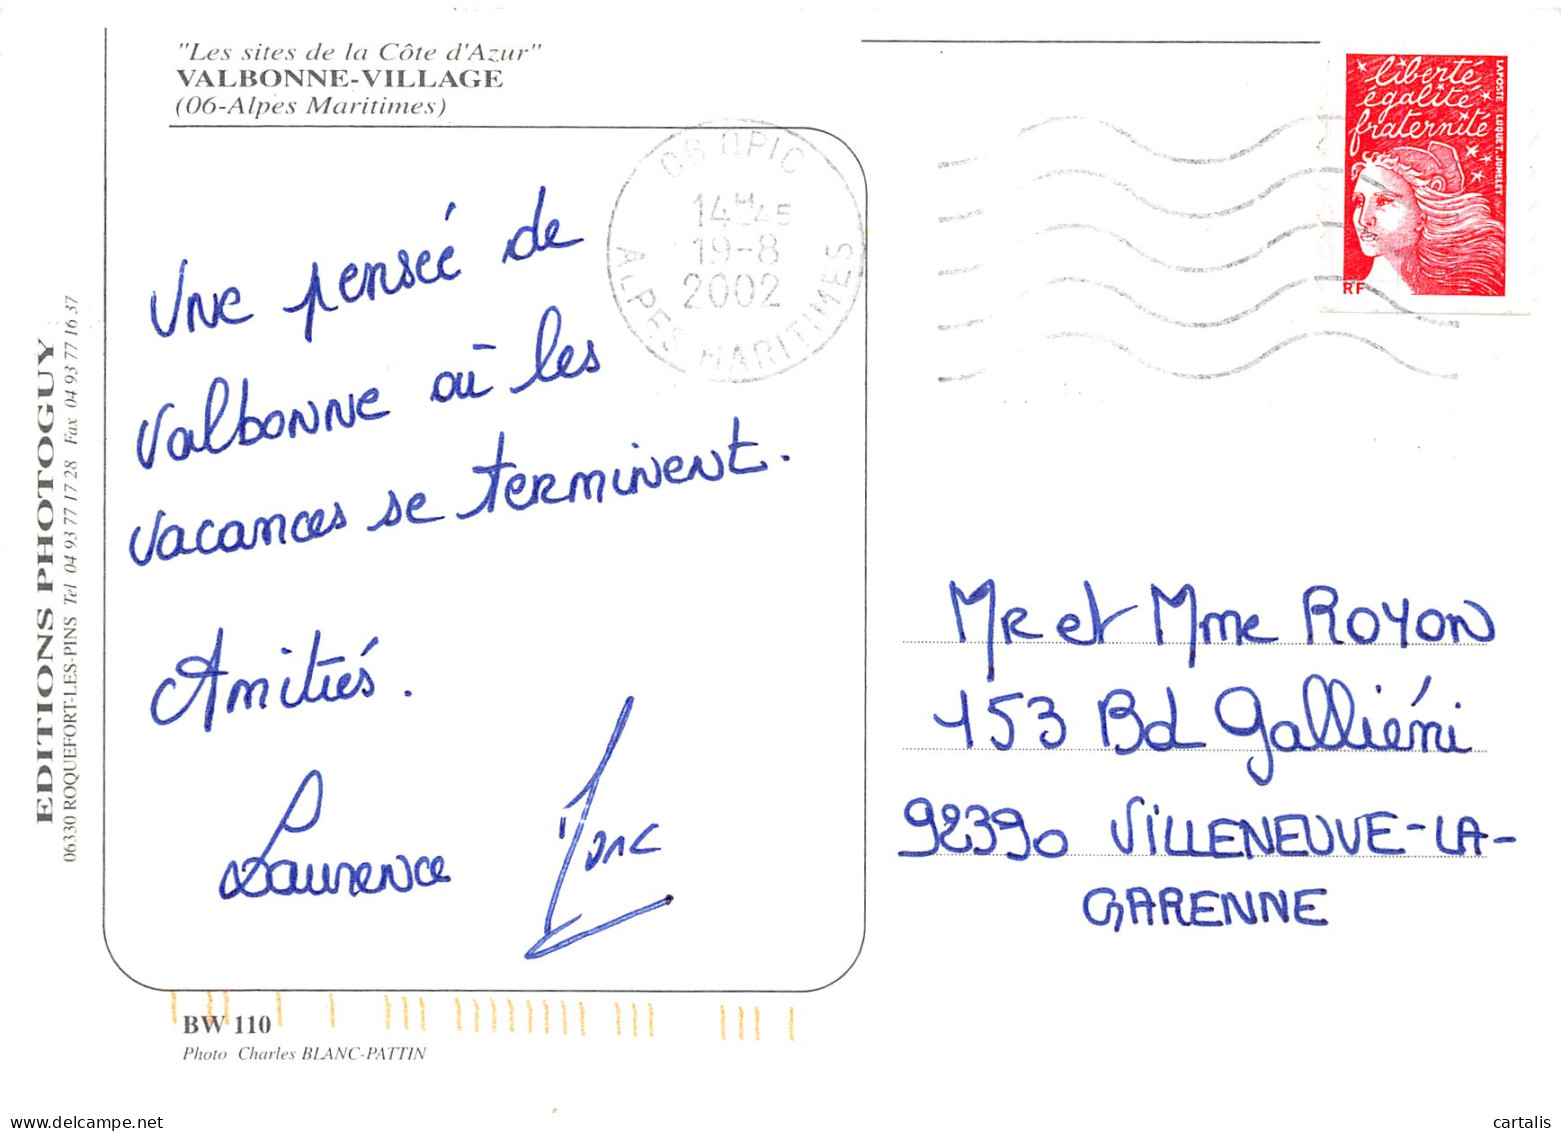 "Les sites de la Côte d'Azur"
VALBONNE-VILLAGE
(06-Alpes Maritimes)
Une pensée de
Valbonne où les
vacances se terminent.
Amitiés.
Laurence Marc
EDITIONS PHOTOGUY
06330 ROQUEFORT-LES-PINS Tel 04 93 77 17 28 Fax 04 93 77 16 37
06 OPIC
14H45
19-8
2002
ALPES MARITIMES
liberté
égalité
fraternité
LAPOSTE LUQUET JUMELET
RF
Mr et Mme ROYON
153 Bd Galliéni
92390 VILLENEUVE-LA-
GARENNE
BW 110
Photo Charles BLANC-PATTIN
cartalis
www.delcampe.net